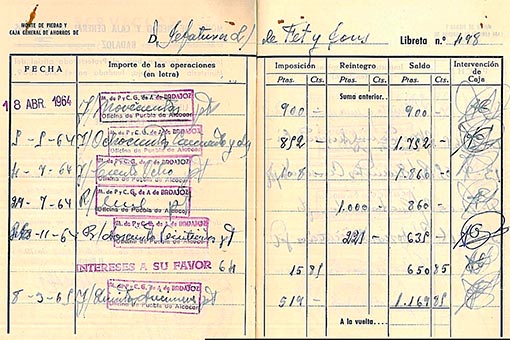 MONTE DE PIEDAD Y
CAJA GENERAL DE AHORROS DE
D. Jefatura L/ de Fet y Jons Libreta n.º 1198
FECHA Importe de las operaciones (en letra) Imposición Reintegro Saldo Intervención de Caja
Ptas. Cts. Ptas. Cts. Ptas. Cts.
Suma anterior..
18 ABR 1964 I/ Novecientas pt 900 - 900 -
M. de P y C. G. de A. de BADAJOZ
Oficina de Puebla de Alcocer
9-5-64 I/ Ochocientas y dos pt 852 - 1.752 -
M. de P y C. G. de A. de BADAJOZ
Oficina de Puebla de Alcocer
7-64 I/ Ciento Ocho pt 108 - 1.860 -
M. de P y C. G. de A. de BADAJOZ
Oficina de Puebla de Alcocer
7-64 R/ mil pt 1.000 - 860 -
M. de P y C. G. de A. de BADAJOZ
Oficina de Puebla de Alcocer
11-64 R/ pt 221 - 635 -
M. de P y C. G. de A. de BADAJOZ
Oficina de Puebla de Alcocer
INTERESES A SU FAVOR 64 15 85 650 85
8-3-65 I/ pt 519 - 1.169 85
M. de P y C. G. de A. de BADAJOZ
Oficina de Puebla de Alcocer
A la vuelta...